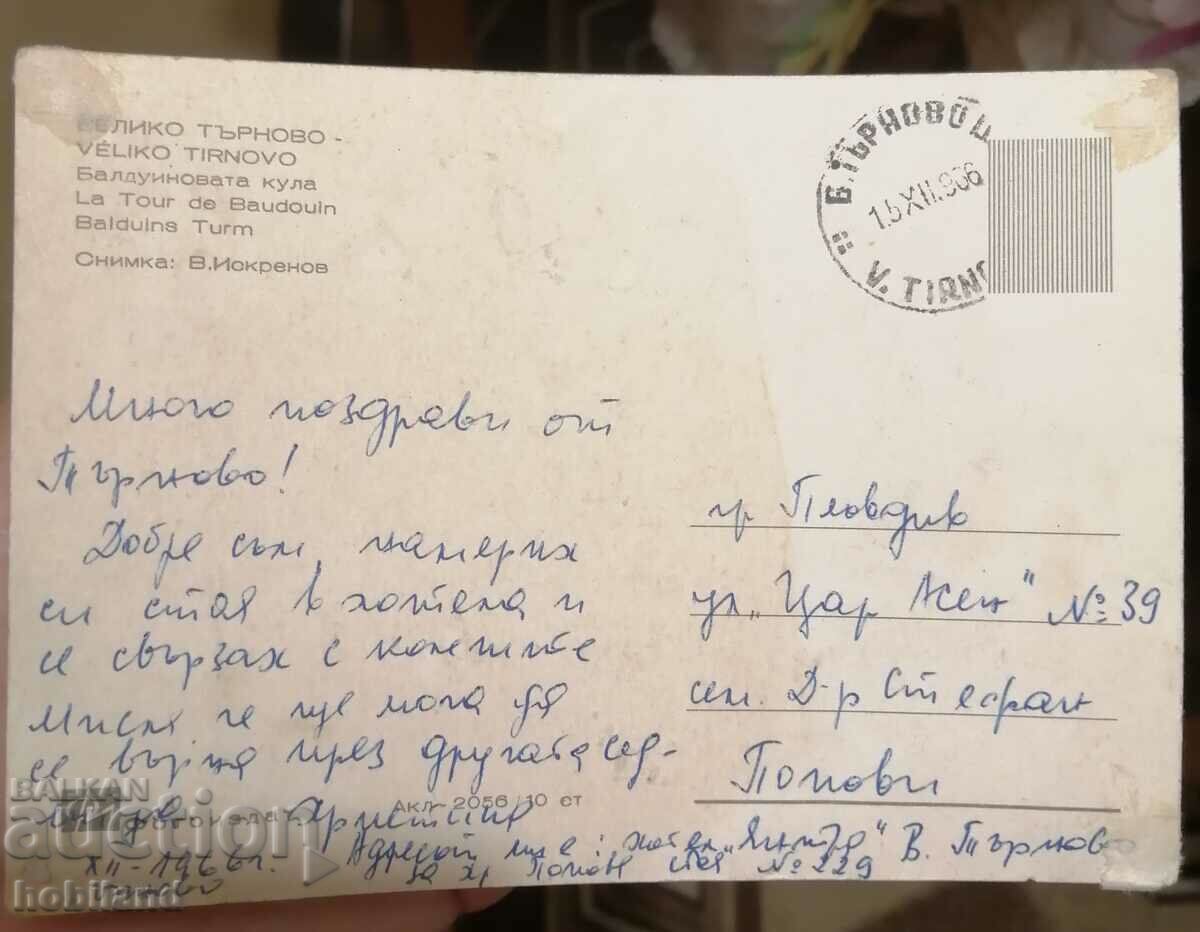 ВЕЛИКО ТЪРНОВО -
VÉLIKO TIRNOVO
Балдуиновата кула
La Tour de Baudouin
Balduins Turm
Снимка: В.Искренов
В. ТЪРНОВО Ц
15 XII.966
V. TIRNO
Много поздрави от
Търново!
Добре съм, намерих
си стая в хотела и
се свързах с колегите
Мисля че ще мога да
се върна през другата сед-
Акл. 2056/10 ст
XII-1966 г.
Адресът ми е: хотел "Янтра" В. Търново
за Попов стая № 229
гр Пловдив
ул. "Цар Асен" № 39
сем. Д-р Стефан
Попови
BALKAN
auction
hobiland